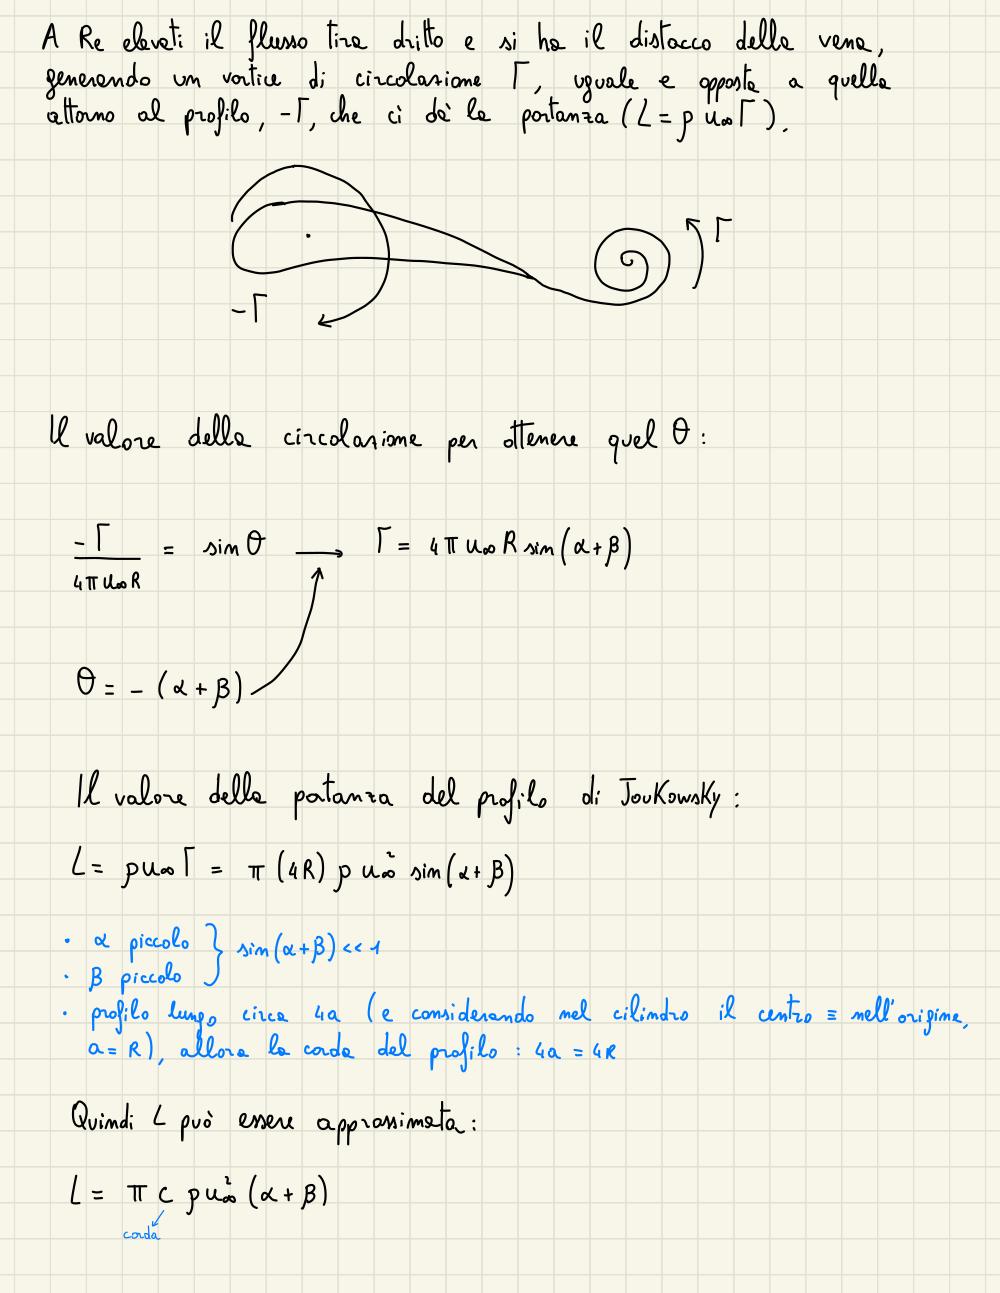 A Re elevati il flusso tira dritto e si ha il distacco della vena,
generando un vortice di circolazione Γ, uguale e opposta a quella
attorno al profilo, -Γ, che ci dà la portanza (L = ρ u∞ Γ).
Γ
-Γ
Il valore della circolazione per ottenere quel θ:
-Γ / 4π u∞ R = sin θ → Γ = 4π u∞ R sin(α+β)
θ = - (α+β)
Il valore della portanza del profilo di JouKowsKy:
L = ρ u∞ Γ = π (4R) ρ u∞² sin(α+β)
• α piccolo } sin(α+β) << 1
• β piccolo
• profilo lungo circa 4a (e considerando nel cilindro il centro ≡ nell'origine,
a = R), allora la corda del profilo : 4a = 4R
Quindi L può essere approssimata:
L = π c ρ u∞² (α+β)
corda